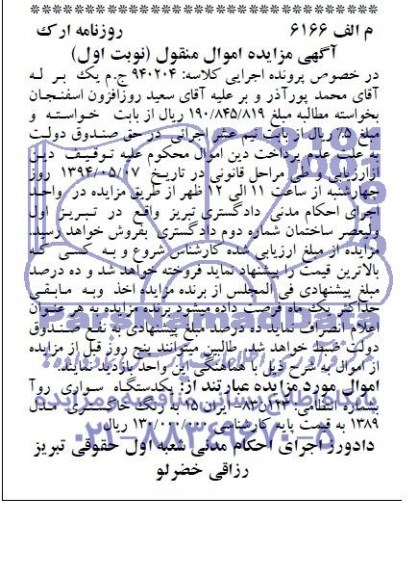 م الف ۶۱۶۶ روزنامه ارک
آگهی مزایده اموال منقول (نوبت اول)
در خصوص پرونده اجرایی کلاسه: ۹۴۰۲۰۴ ج.م یک بر له
آقای محمد پورآذر و بر علیه آقای سعید روزافزون اسفنجان
بخواسته مطالبه مبلغ ۱۹۰/۸۴۵/۸۱۹ ریال از بابت خواسته و
مبلغ ۵٪ ریال از بابت نیم عشر اجرائی در حق صندوق دولت
به علت عدم پرداخت دین اموال محکوم علیه توقیف دین
ارزاریابی و طی مراحل قانونی در تاریخ ۱۳۹۴/۰۵/۰۷ روز
چهارشنبه از ساعت ۱۱ الی ۱۲ ظهر از طریق مزایده در واحد
اجرای احکام مدنی دادگستری تبریز واقع در تبریز اول
ولیعصر ساختمان شماره دوم دادگستری بفروش خواهد رسید.
مزایده از مبلغ ارزیابی شده کارشناس شروع و به کسی که
بالاترین قیمت را پیشنهاد نماید فروخته خواهد شد و ده درصد
مبلغ پیشنهادی فی المجلس از برنده مزایده اخذ وبه مابقی
حداکثر یک ماه فرصت داده میشود برنده مزایده به هر عنوان
اعلام انصراف نماید ده درصد مبلغ پیشنهادی به نفع صندوق
دولت ضبط خواهد شد. طالبین میتوانند پنج روز قبل از مزایده
از اموال به شرح ذیل با هماهنگی این واحد بازدید نمایند.
اموال مورد مزایده عبارتند از: یکدستگاه سواری روآ
بشماره انتظامی: ۱۲۳ن۸۳- ایران ۱۵ به رنگ خاکستری مدل
۱۳۸۹ به قیمت پایه کارشناسی ۱۳۰/۰۰۰/۰۰۰ ریال.
دادورز اجرای احکام مدنی شعبه اول حقوقی تبریز
رزاقی خضرلو
ParsNamadData
پایگاه اطلاع رسانی مناقصه و مزایده
۰۲۱-۸۸۳۴۹۶۷۰-۵